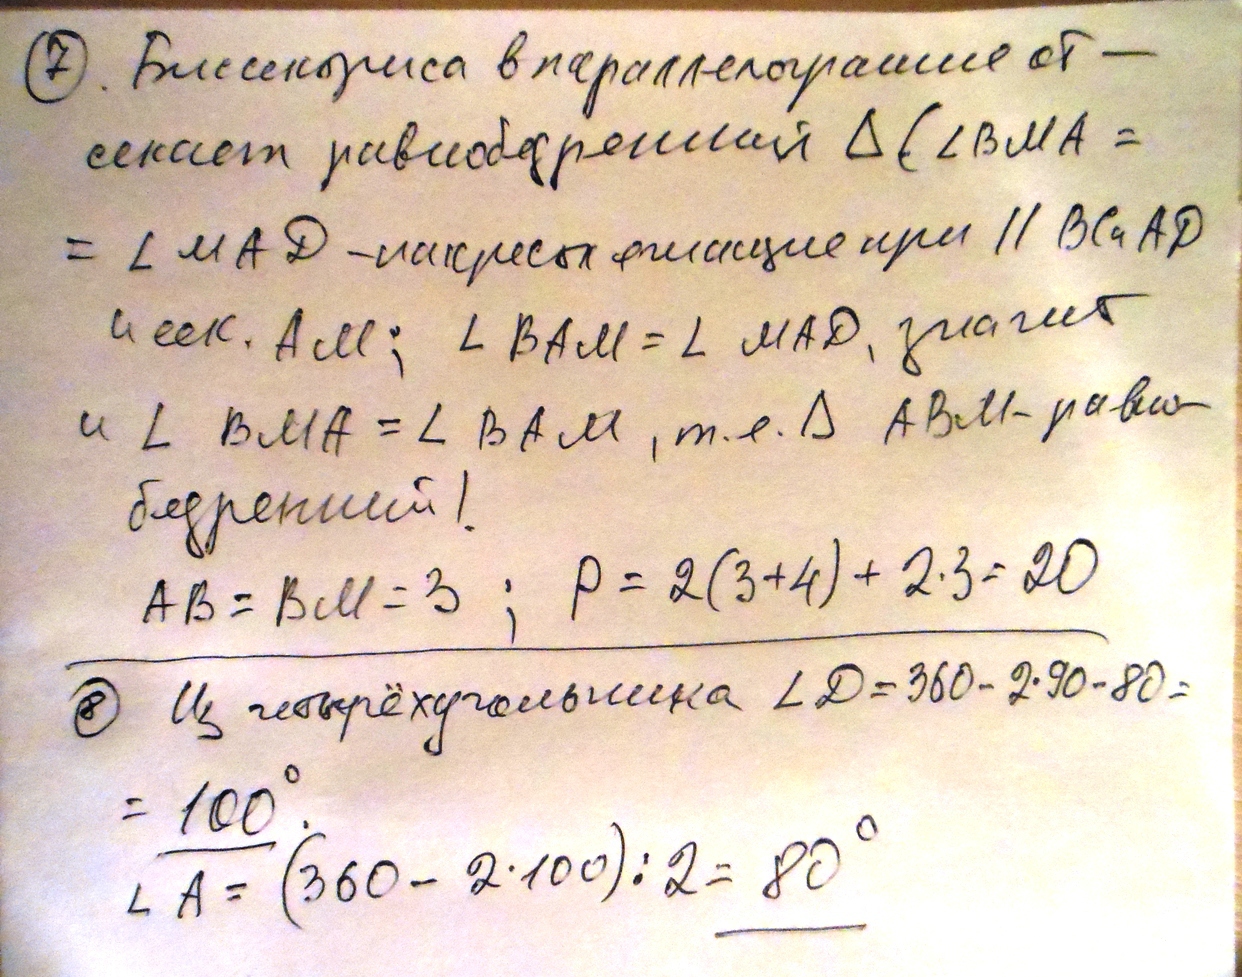 7. Биссектриса в параллелограмме от-
секает равнобедренный Δ (∠BMA =
= ∠MAD - накрест лежащие при || BC и AD
и сек. AM; ∠BAM = ∠MAD, значит
и ∠BMA = ∠BAM, т.е. Δ ABM - равно-
бедренный!
AB = BM = 3 ; P = 2(3+4) + 2·3 = 20
8 Из четырёхугольника ∠D = 360 - 2·90 - 80 =
= 100°.
∠A = (360 - 2·100) : 2 = 80°